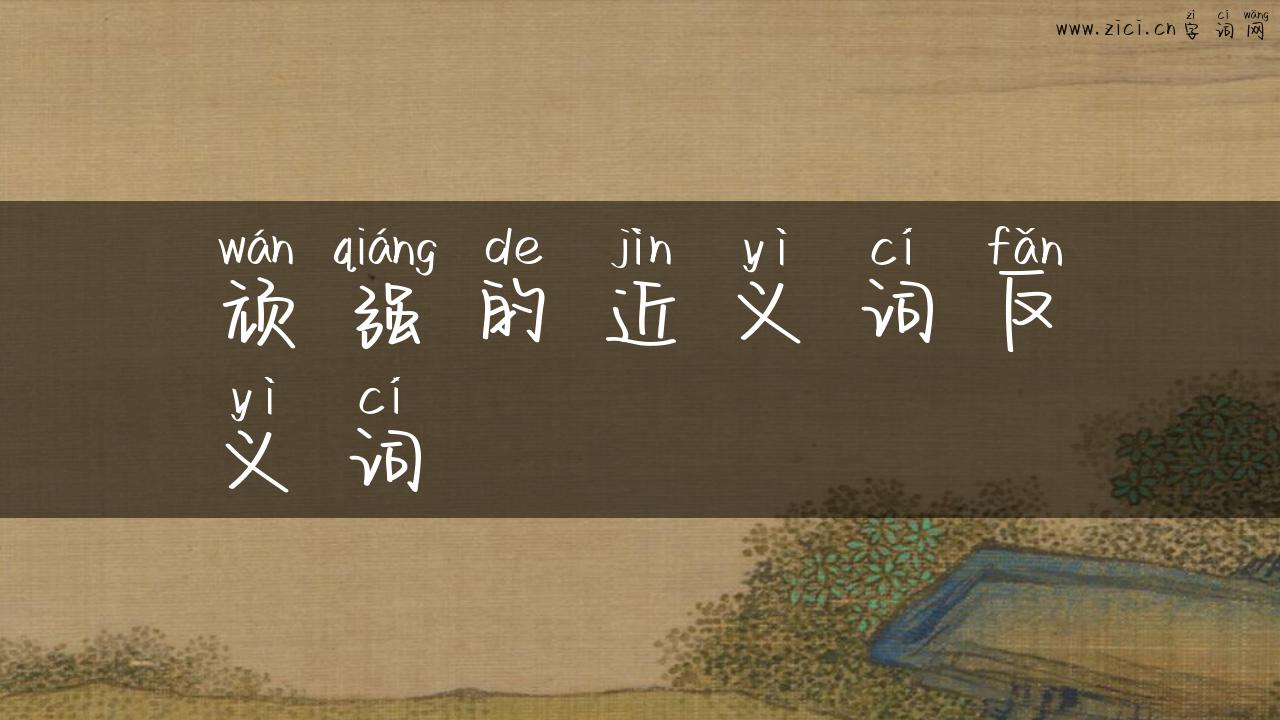 zì cí wǎng
www.zici.cn 字词网
wán qiáng de jìn yì cí fǎn
顽强的近义词反
yì cí
义词